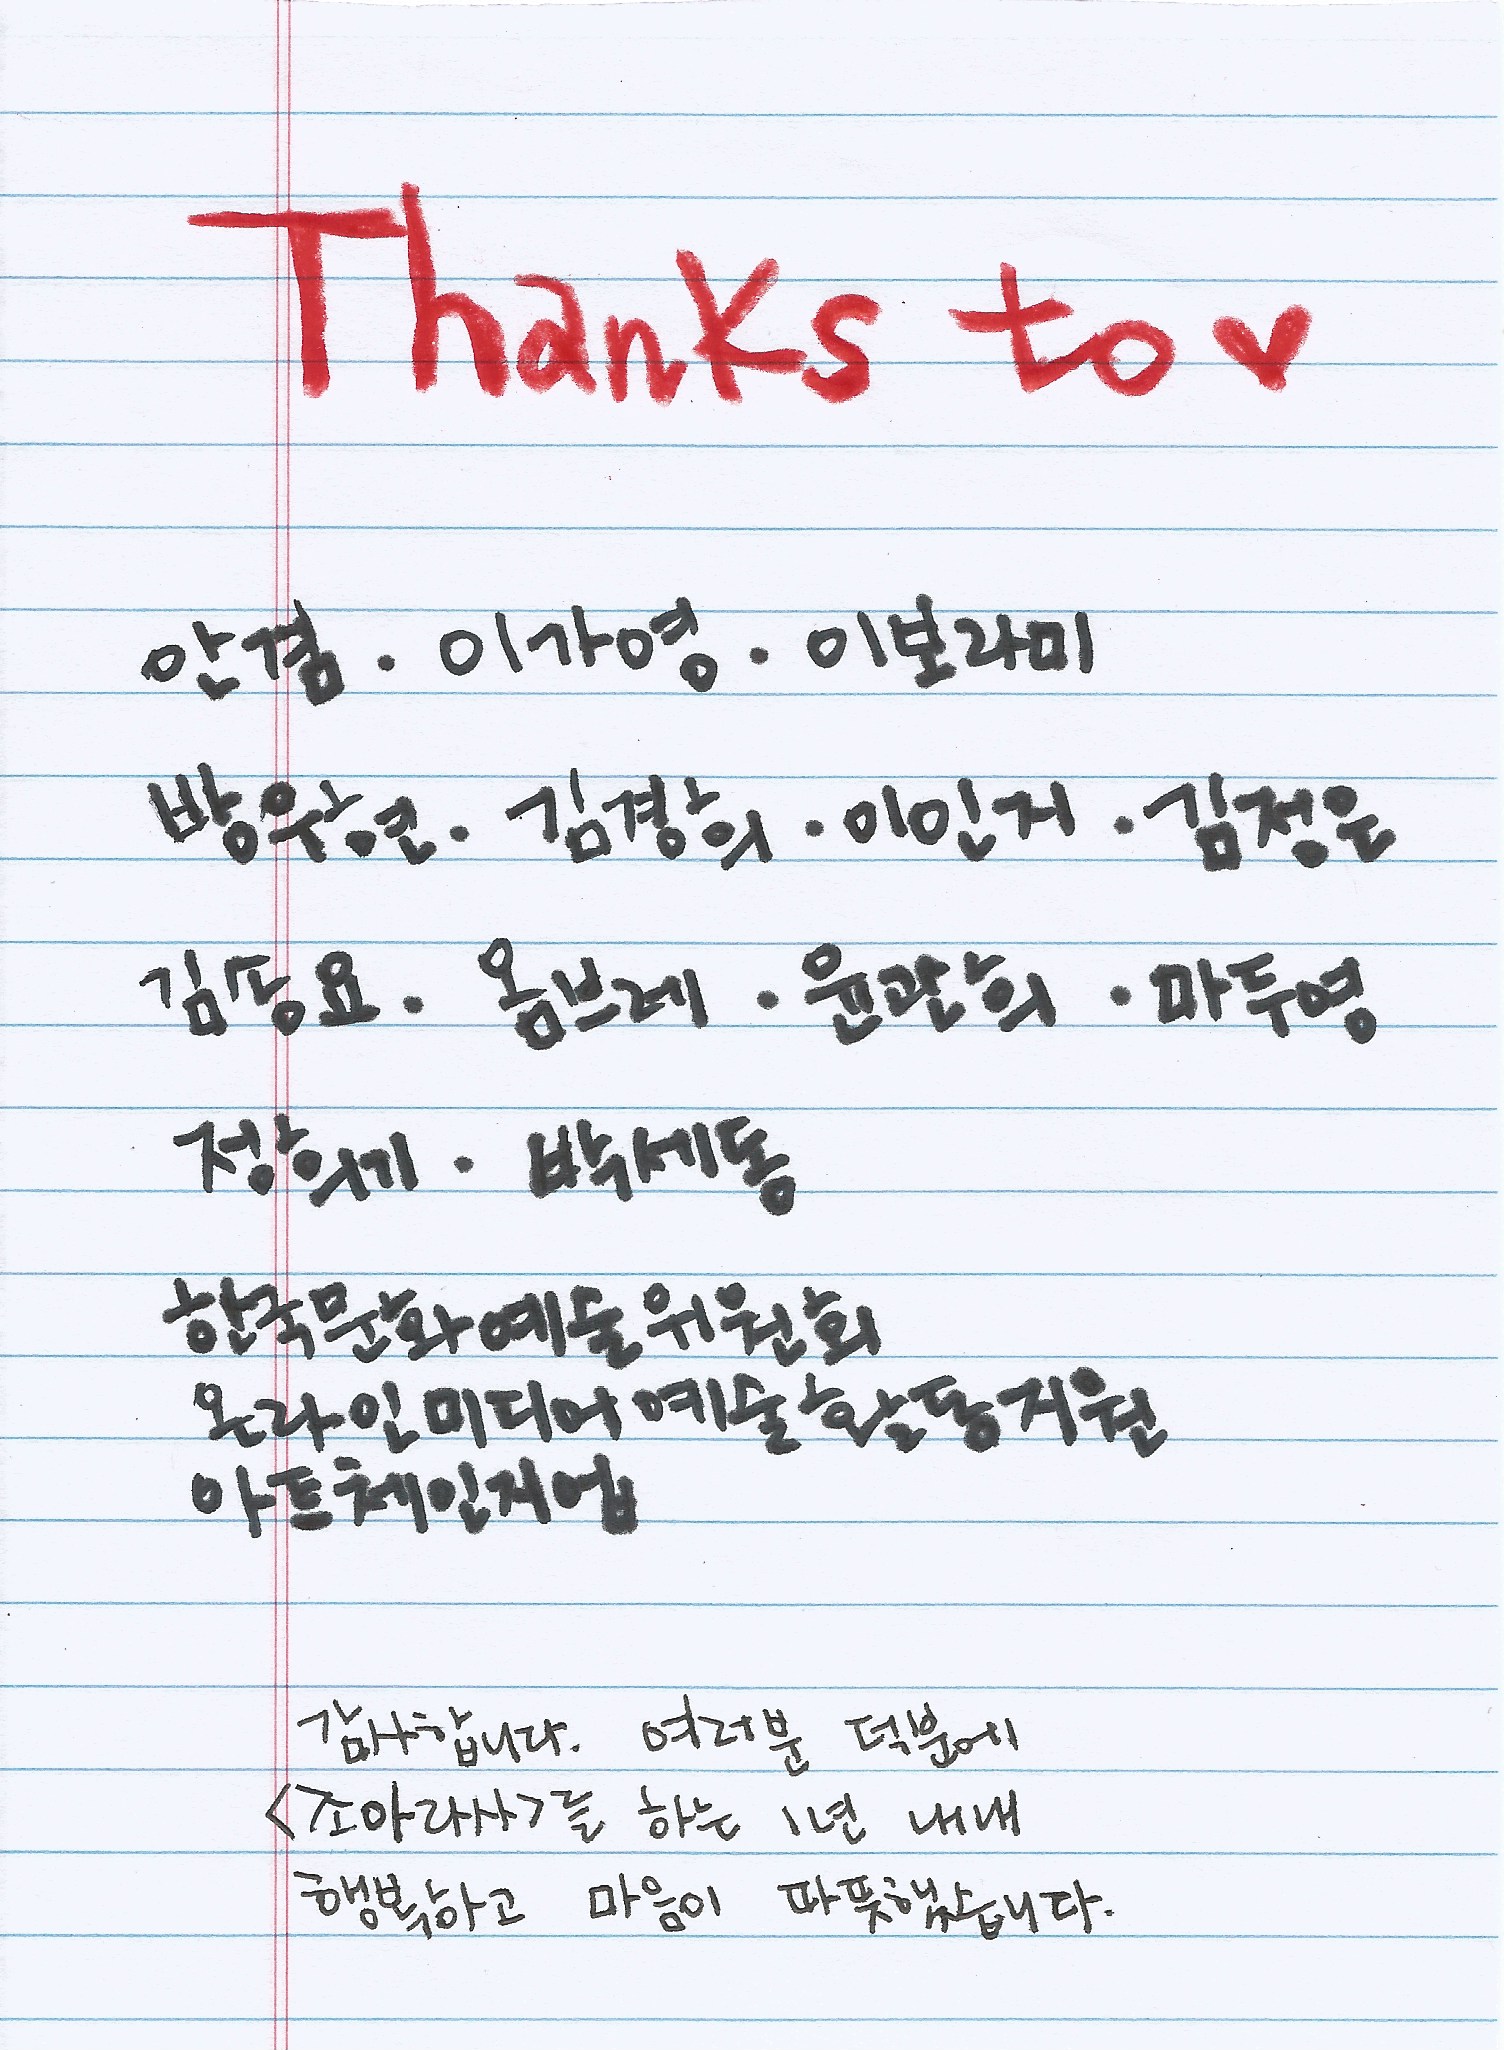 Thanks to ♥
안겸 · 이가영 · 이보라미
방우현 · 김경희 · 이인지 · 김정은
김송요 · 옴브레 · 윤관희 · 마두영
정의기 · 박세동
한국문화예술위원회
온라인미디어예술활동지원
아트체인지업
감사합니다. 여러분 덕분에
<조아라사>를 하는 1년 내내
행복하고 마음이 따뜻했습니다.